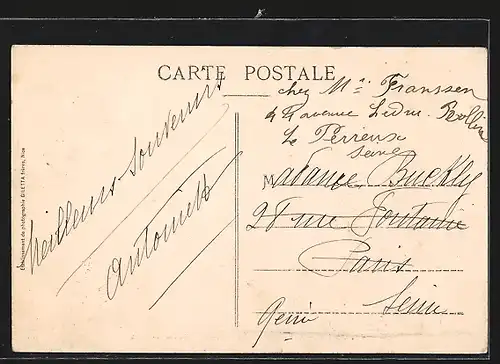 CARTE POSTALE
Meilleurs Souvenirs
Antoinette
chez Mr. Franssen
avenue Ledru. Rollin
Le Perreux
Seine
Madame Buckly
28 rue Fontaine
Paris
Seine
Etablissement de photographie GILETTA frères, Nice